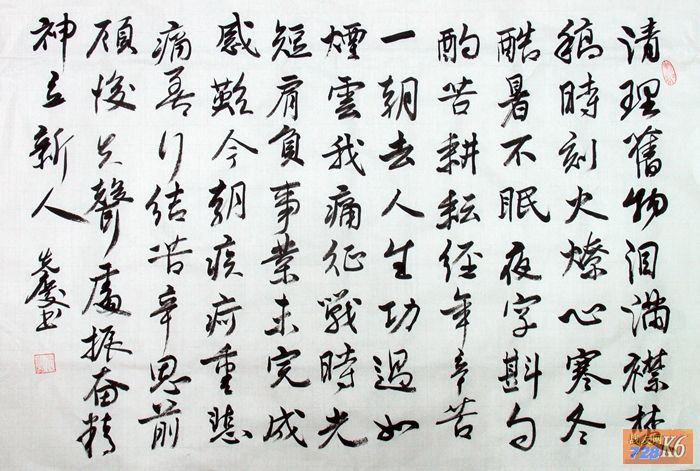 清理舊物泪满襟焚
稿時刻火燎心寒冬
酷暑不眠夜字斟句
酌苦耕耘经年辛苦
一朝去人生功過如
煙雲我痛征戰時光
短肩負事業未完成
感歎今朝疾疴重悲
痛善行结苦辛思前
顧後失聲處振奋精
神立新人
书
K6
728